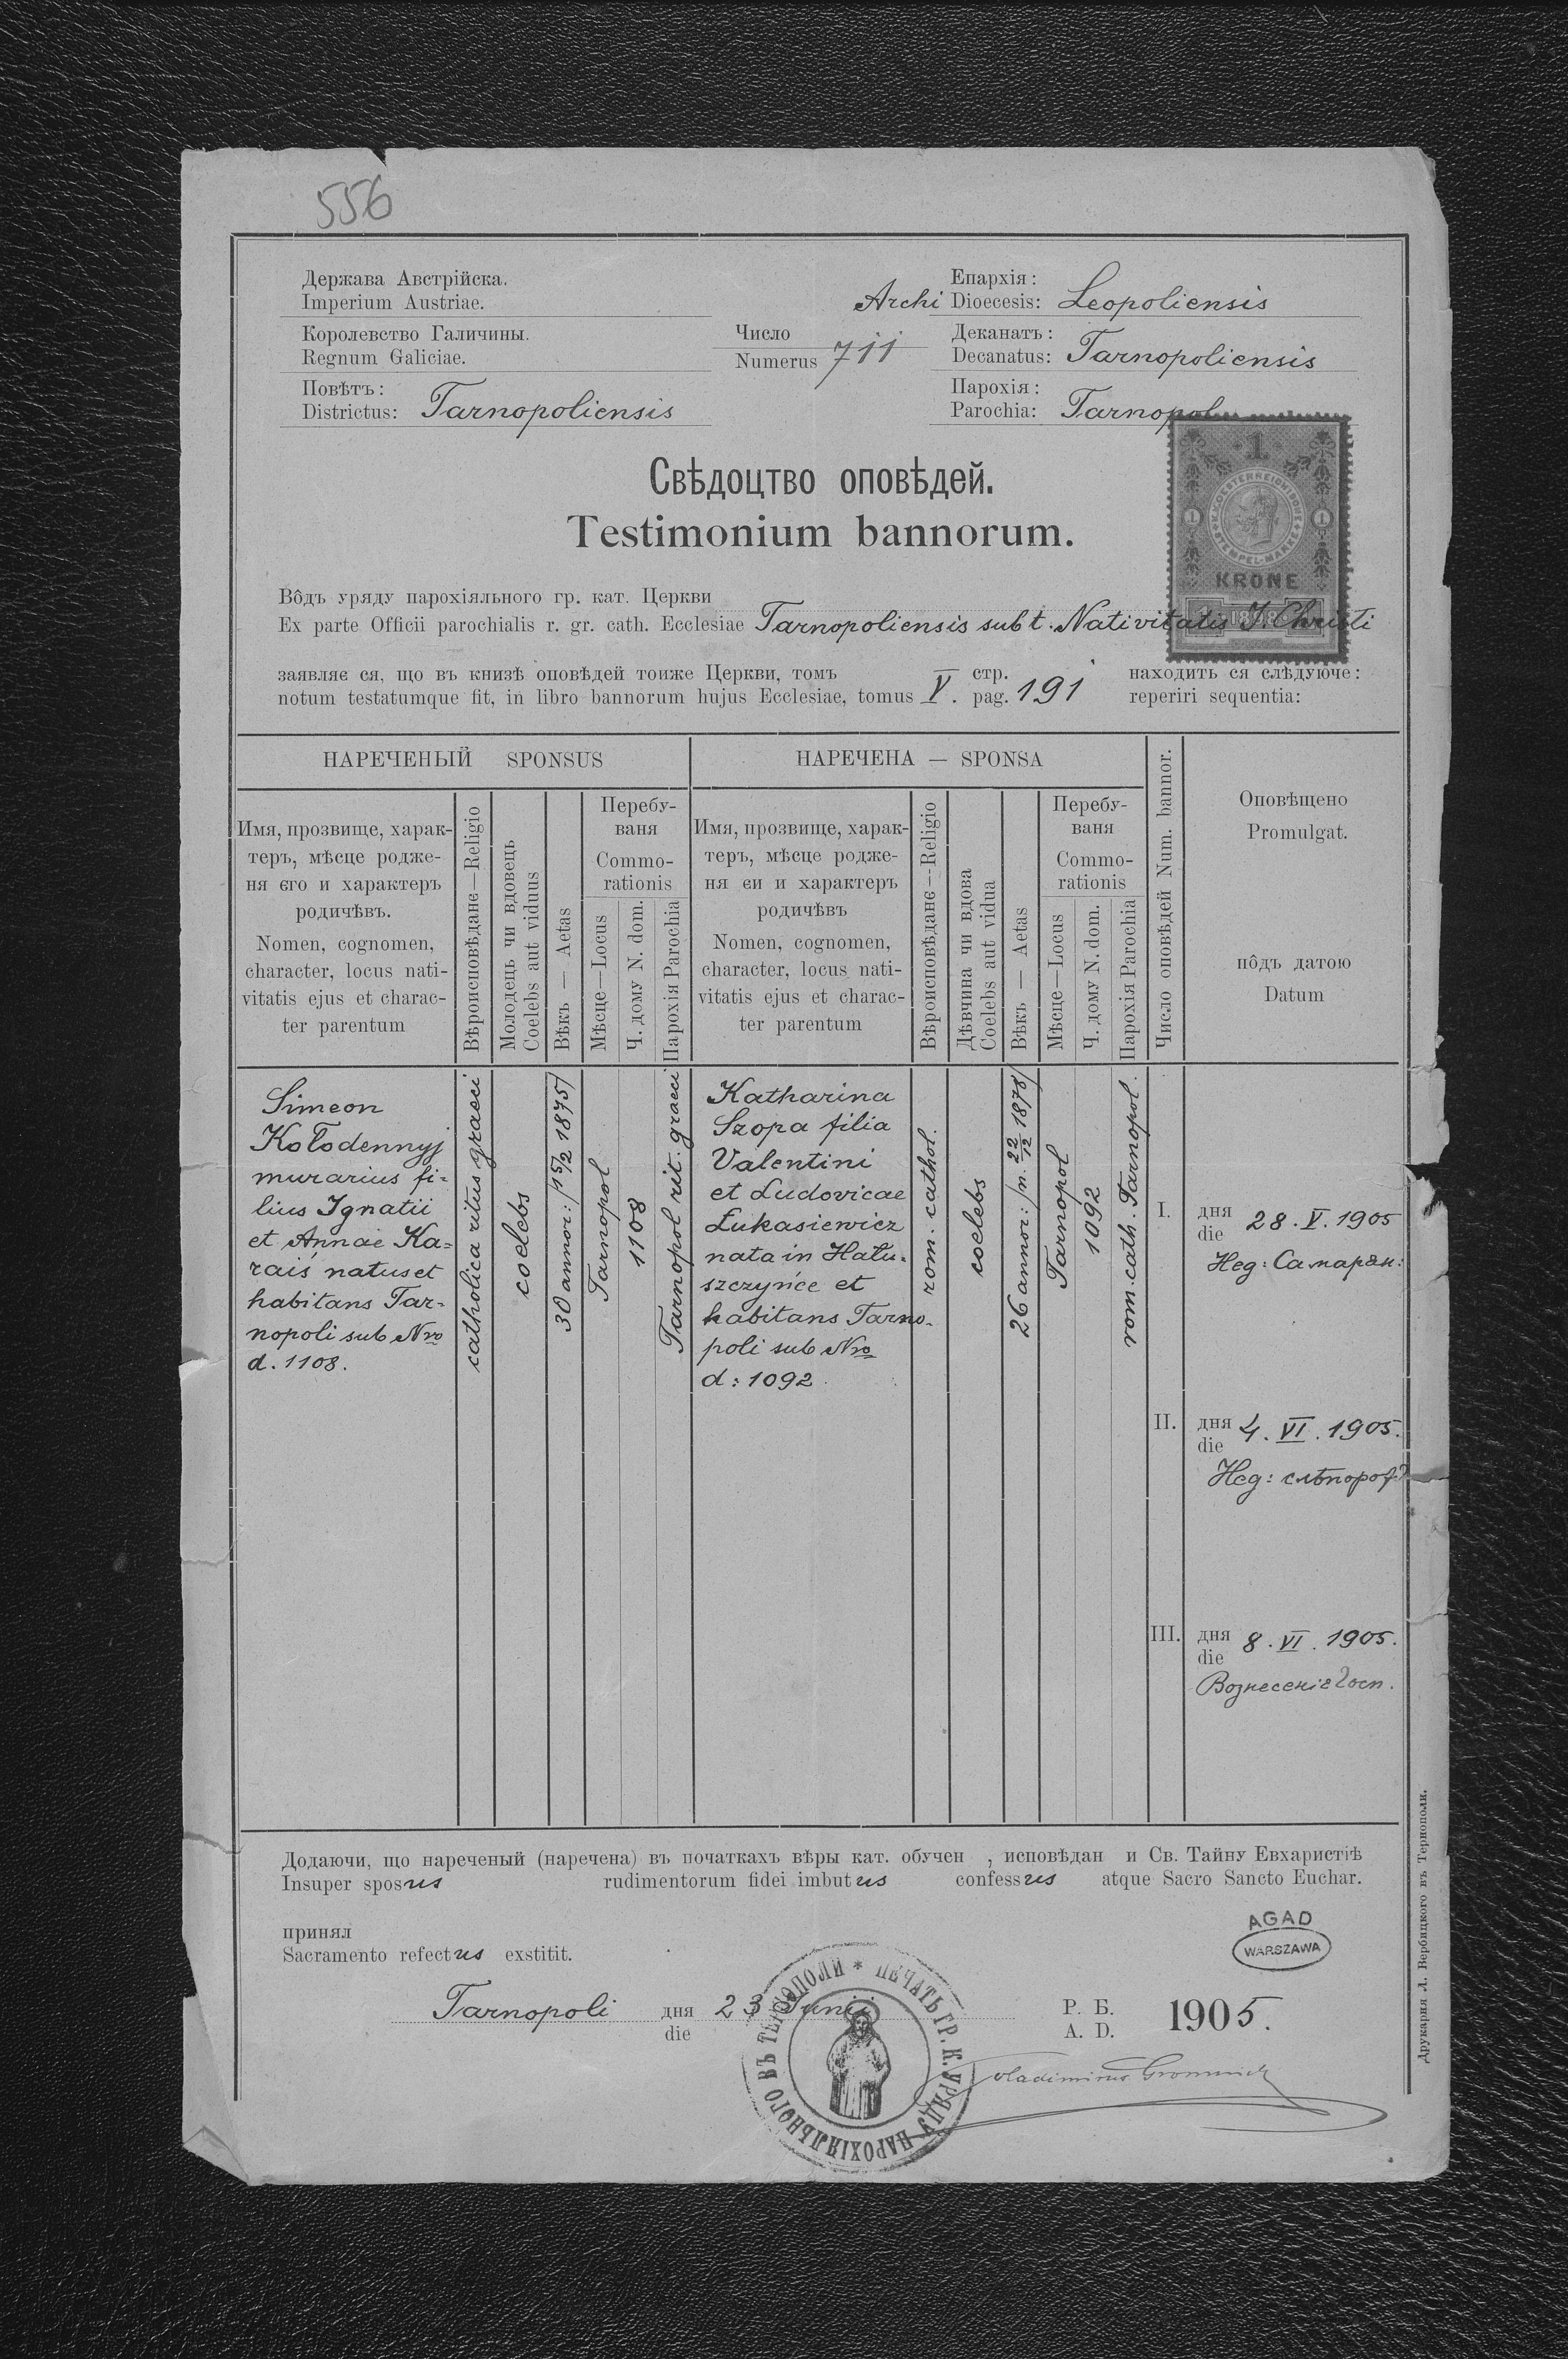 556
Держава Австрійска.
Imperium Austriae.
Королевство Галичины.
Regnum Galiciae.
Повѣтъ:
Districtus: Tarnopoliensis
Число
Numerus 711
Епархія:
Archi Dioecesis: Leopoliensis
Деканатъ:
Decanatus: Tarnopoliensis
Парохія:
Parochia: Tarnopol
1
K.K. OESTERREICHISCHE STEMPEL-MARKE
1 1
KRONE
1898
Свѣдоцтво оповѣдей.
Testimonium bannorum.
Вôдъ уряду парохіяльного гр. кат. Церкви
Ex parte Officii parochialis r. gr. cath. Ecclesiae Tarnopoliensis sub t. Nativitatis J. Christi
заявляє ся, що въ книзѣ оповѣдей тоиже Церкви, томъ стр. находить ся слѣдуюче:
notum testatumque fit, in libro bannorum hujus Ecclesiae, tomus V. pag. 191 reperiri sequentia:
НАРЕЧЕНЫЙ SPONSUS
НАРЕЧЕНА — SPONSA
Имя, прозвище, харак-
теръ, мѣсце родже-
ня єго и характеръ
родичѣвъ.
Nomen, cognomen,
character, locus nati-
vitatis ejus et charac-
ter parentum
Вѣроисповѣдане—Religio
Молодець чи вдовець
Coelebs aut viduus
Вѣкъ — Aetas
Перебу-
ваня
Commo-
rationis
Мѣсце—Locus
Ч. дому N. dom.
Парохія Parochia
Имя, прозвище, харак-
теръ, мѣсце родже-
ня єи и характеръ
родичѣвъ
Nomen, cognomen,
character, locus nati-
vitatis ejus et charac-
ter parentum
Вѣроисповѣданє—Religio
Дѣвчина чи вдова
Coelebs aut vidua
Вѣкъ — Aetas
Перебу-
ваня
Commo-
rationis
Мѣсце—Locus
Ч. дому N. dom.
Парохія Parochia
Число оповѣдей Num. bannor.
Оповѣщено
Promulgat.
пôдъ датою
Datum
Simeon
Kołodennyj
murarius fi-
lius Ignatii
et Annae Ka-
raiś natus et
habitans Tar-
nopoli sub Nro
d. 1108.
catholica ritus graeci
coelebs
30 annor: /15/2 1875/
Tarnopol
1108
Tarnopol rit. graeci
Katharina
Szopa filia
Valentini
et Ludovicae
Łukasiewicz
nata in Hału-
szczyńce et
habitans Tarno-
poli sub Nro
d: 1092
rom. cathol.
coelebs
26 annor: /n. 22/12 1878/
Tarnopol
1092
rom. cath. Tarnopol.
I. дня
die 28. V. 1905
Нед: Самарян:
II. дня
die 4. VI. 1905.
Нед:
III. дня
die 8. VI. 1905.
Вознесеніе Госп.
Додаючи, що нареченый (наречена) въ початкахъ вѣры кат. обучен , исповѣдан и Св. Тайну Евхаристіѣ
Insuper sponsus rudimentorum fidei imbutus confessus atque Sacro Sancto Euchar.
принял
Sacramento refectus exstitit.
AGAD
WARSZAWA
Tarnopoli дня
die 23 Junii Р. Б.
A. D. 1905.
ПЕЧАТЬ ГР. К. УРЯДУ ПАРОХІЯЛЬНОГО ВЪ ТЕРНОПОЛИ *
Vladimirus Gromnicki
Друкарня Л. Вербицкого въ Тернополи.